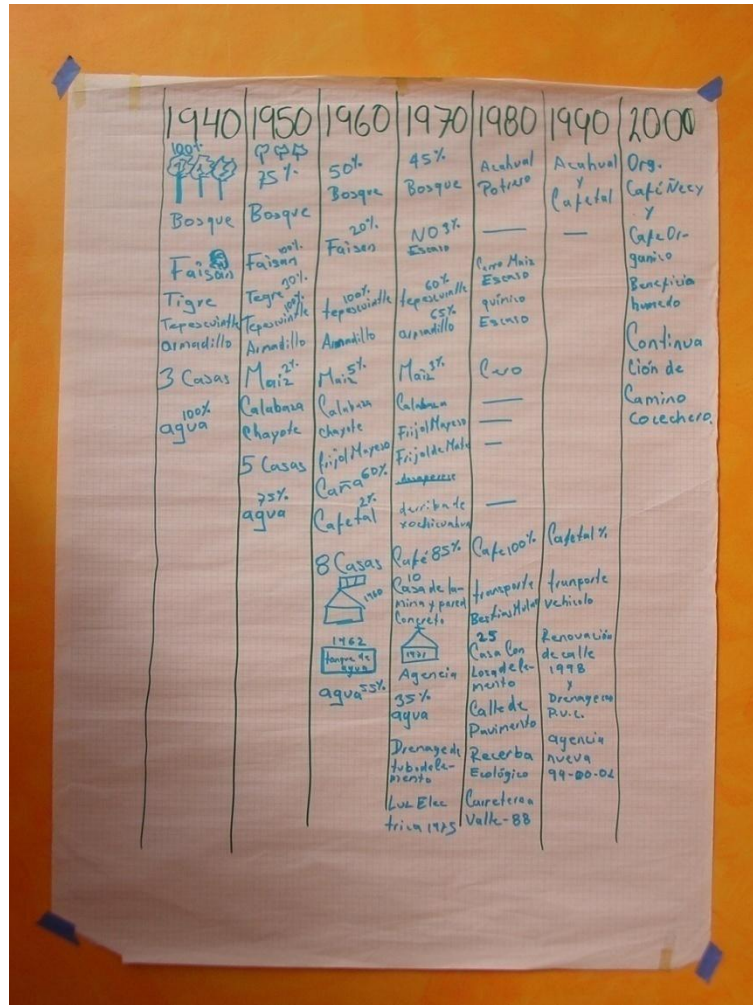 1940
100%
Bosque
Faisán
Tigre
Tepescuintle
armadillo
3 Casas
100%
agua
1950
75%
Bosque
100%
Faisan
Tegre
100%
Tepescuintle
Armadillo
Maiz 2%
Calabaza
Chayote
5 Casas
75%
agua
1960
50%
Bosque
20%
Faisan
100%
tepescuintle
Armadillo
Maiz 5%
Calabaza
chayote
frijol Mayeso
Caña 60%
2%
Cafetal
8 Casas
1960
1962
tanque de
agua
agua 55%
1970
45%
Bosque
NO 3%
Escaso
60%
tepescuintle
65%
armadillo
Maiz 3%
Calabaza
Frijol Mayeso
Frijol de Mata
desaperese
derriba de
Café 85%
10
Casa de la-
mina y pared
Concreto
1971
Agencia
35%
agua
Drenage de
tubo de ce-
mento
Luz Elec
trica 1975
1980
Acahual
Potrero
Cerro Maiz
Escaso
químico
Escaso
Cero
Cafe 100%
transporte
Bestias Mular
25
Casa Con
Losa de ce-
mento
Calle de
Pavimento
Recerba
Ecológico
Carretera
Valle-88
1990
Acahual
y
Cafetal
Cafetal %
trunporte
vehicolo
Renovación
de calle
1998
y
Drenage con
P.v.c.
agencia
nueva
99-00-02
2000
Org.
Café Ñeey
y
Cafe Or-
ganico
Beneficio
humedo
Continua
ción de
Camino
Cocechero.